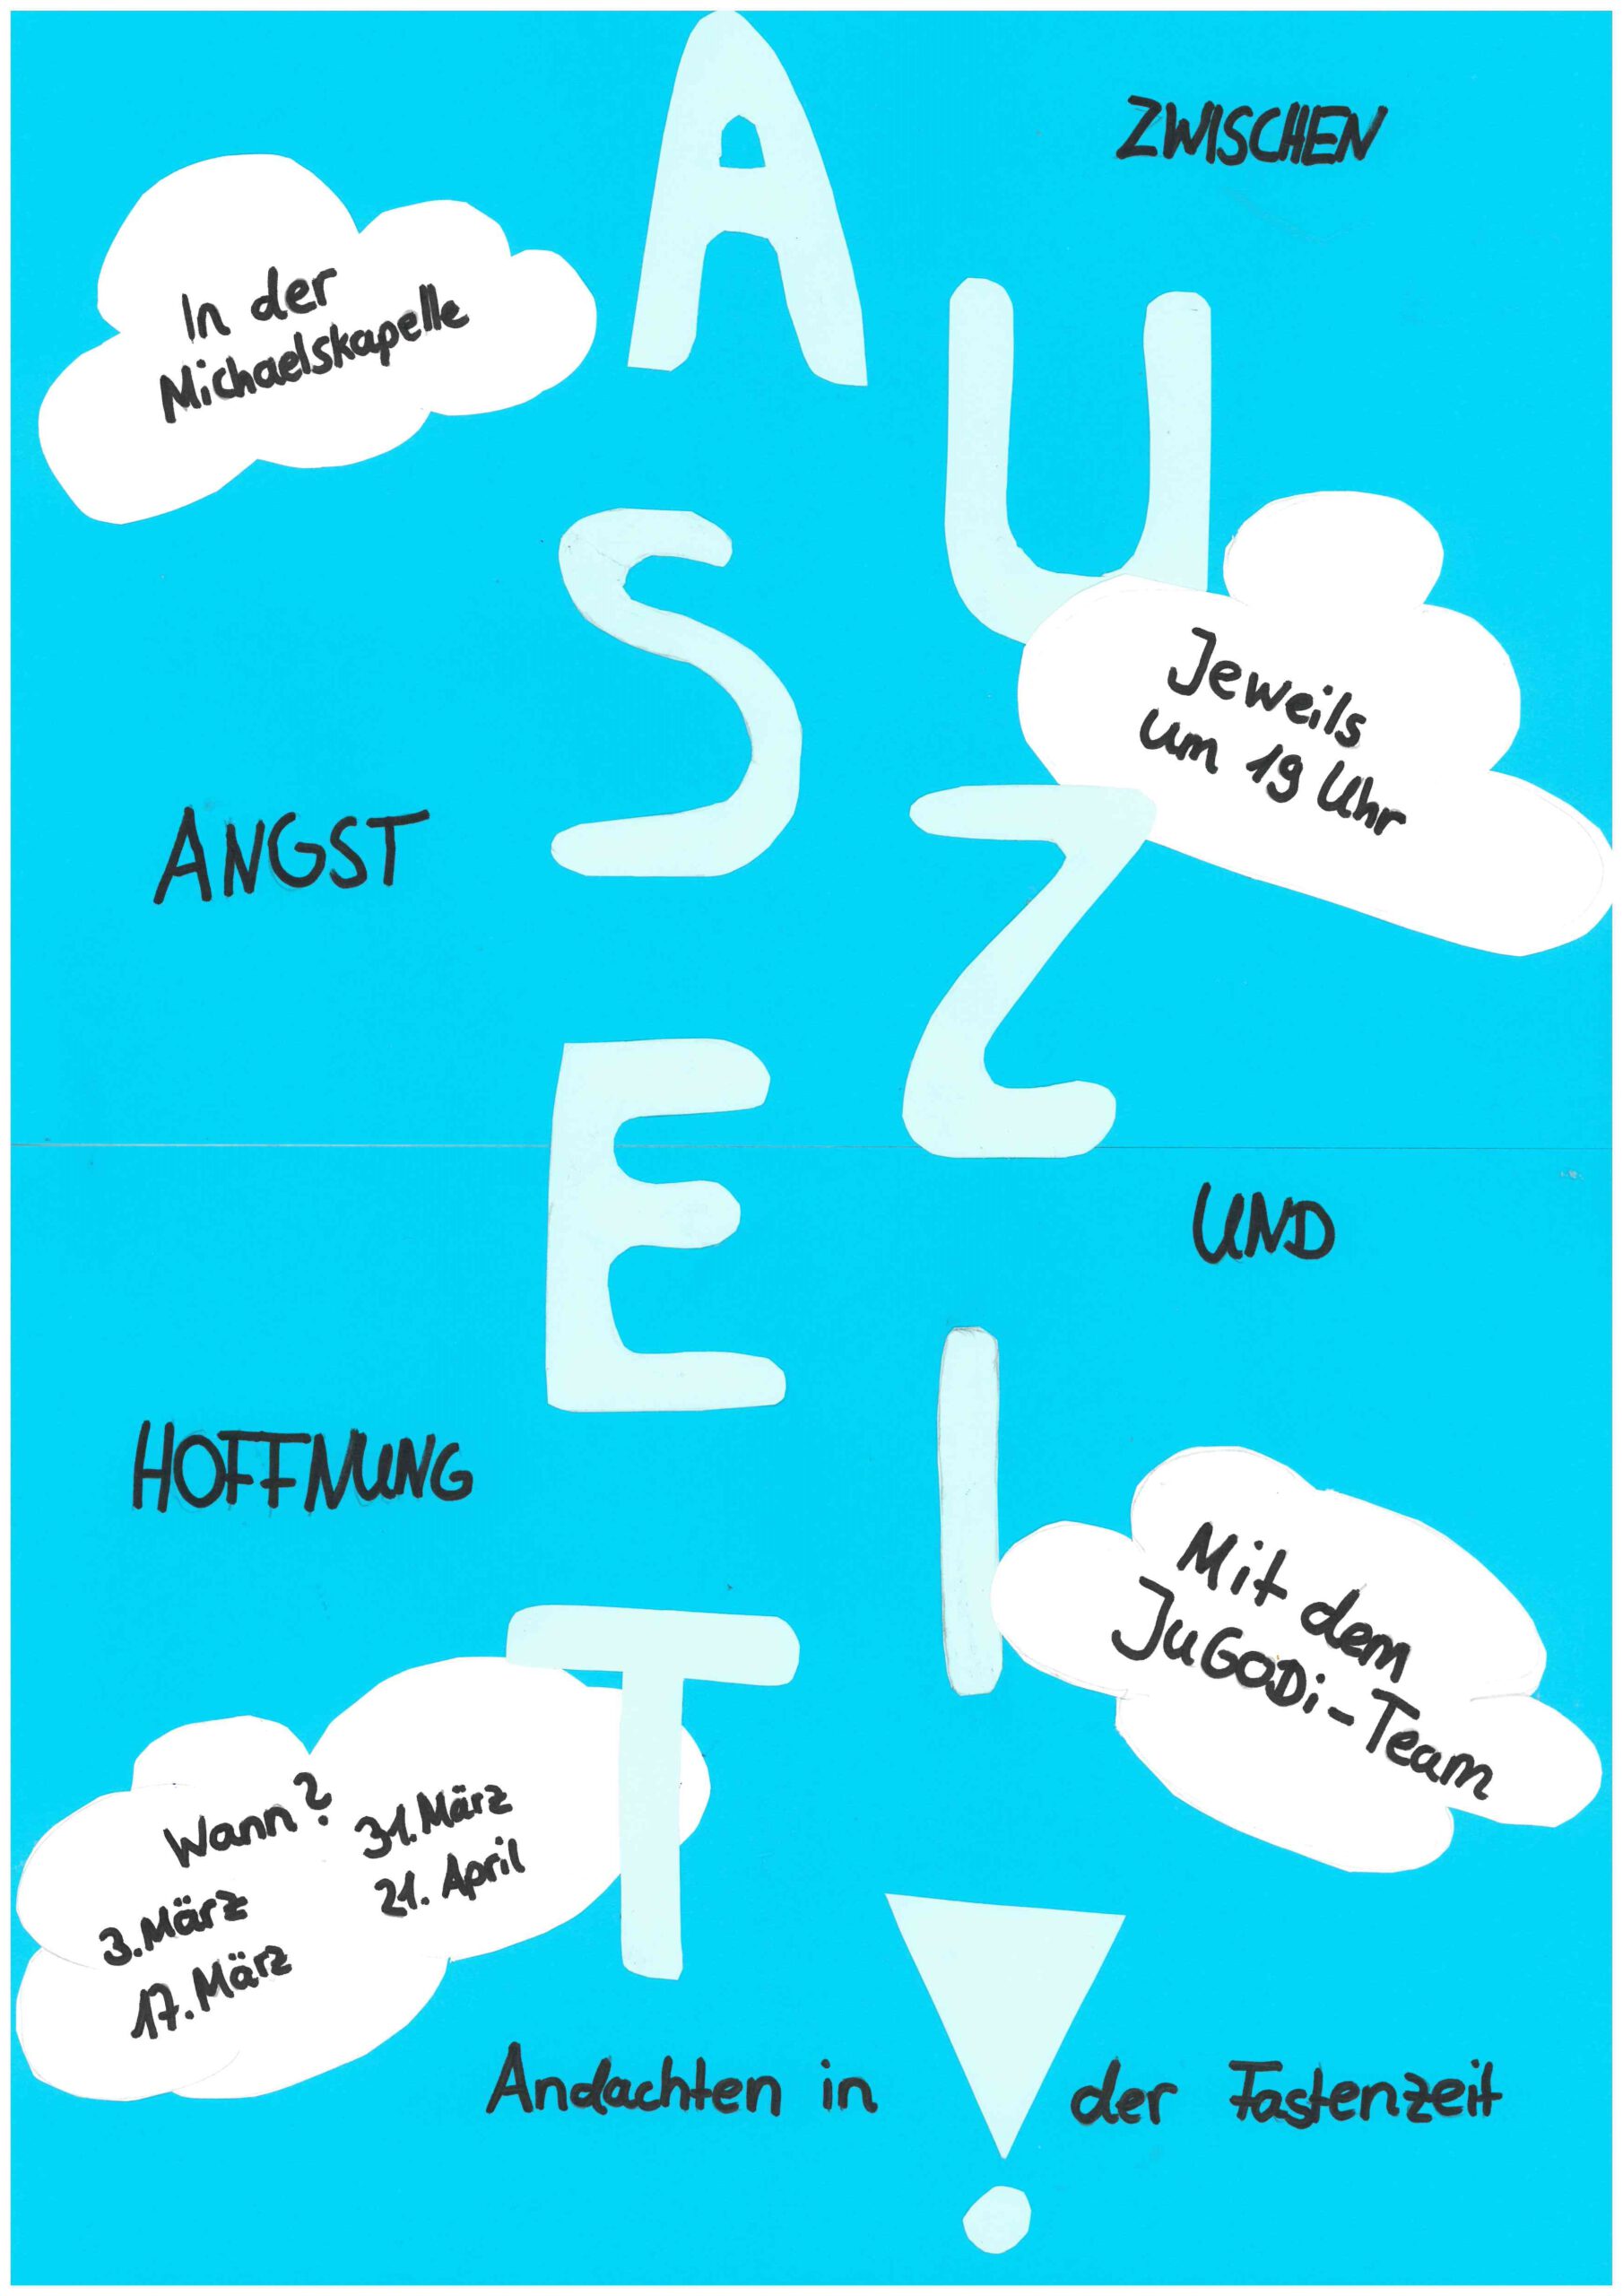 AUSZEIT!
ZWISCHEN
ANGST
UND
HOFFNUNG
In der
Michaelskapelle
Jeweils
um 19 Uhr
Mit dem
JuGoDi-Team
Wann?
3. März
17. März
31. März
21. April
Andachten in der Fastenzeit